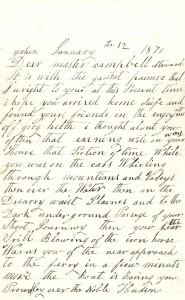 January the 12 1871
Dear master campbell steward
It is with the gratest pleasure that
I wright to your at this present time
i hope you arrived home safe and
found your friends in the enjoyment
of good helth i thought about you
often that evening while on your way
home that portion of time While
you was on the cars Whirling
through mountians and Valeys
then over the Water then on the
Dreary waist Plaines and to the
Dark underground Passage of your
Short Journey then your hear the
Shrill Blowing of the iron horse
Warns your of the near approach
to the ferry in a few minuets
more the Boat is baring you
Proudley over the Noble Hudson